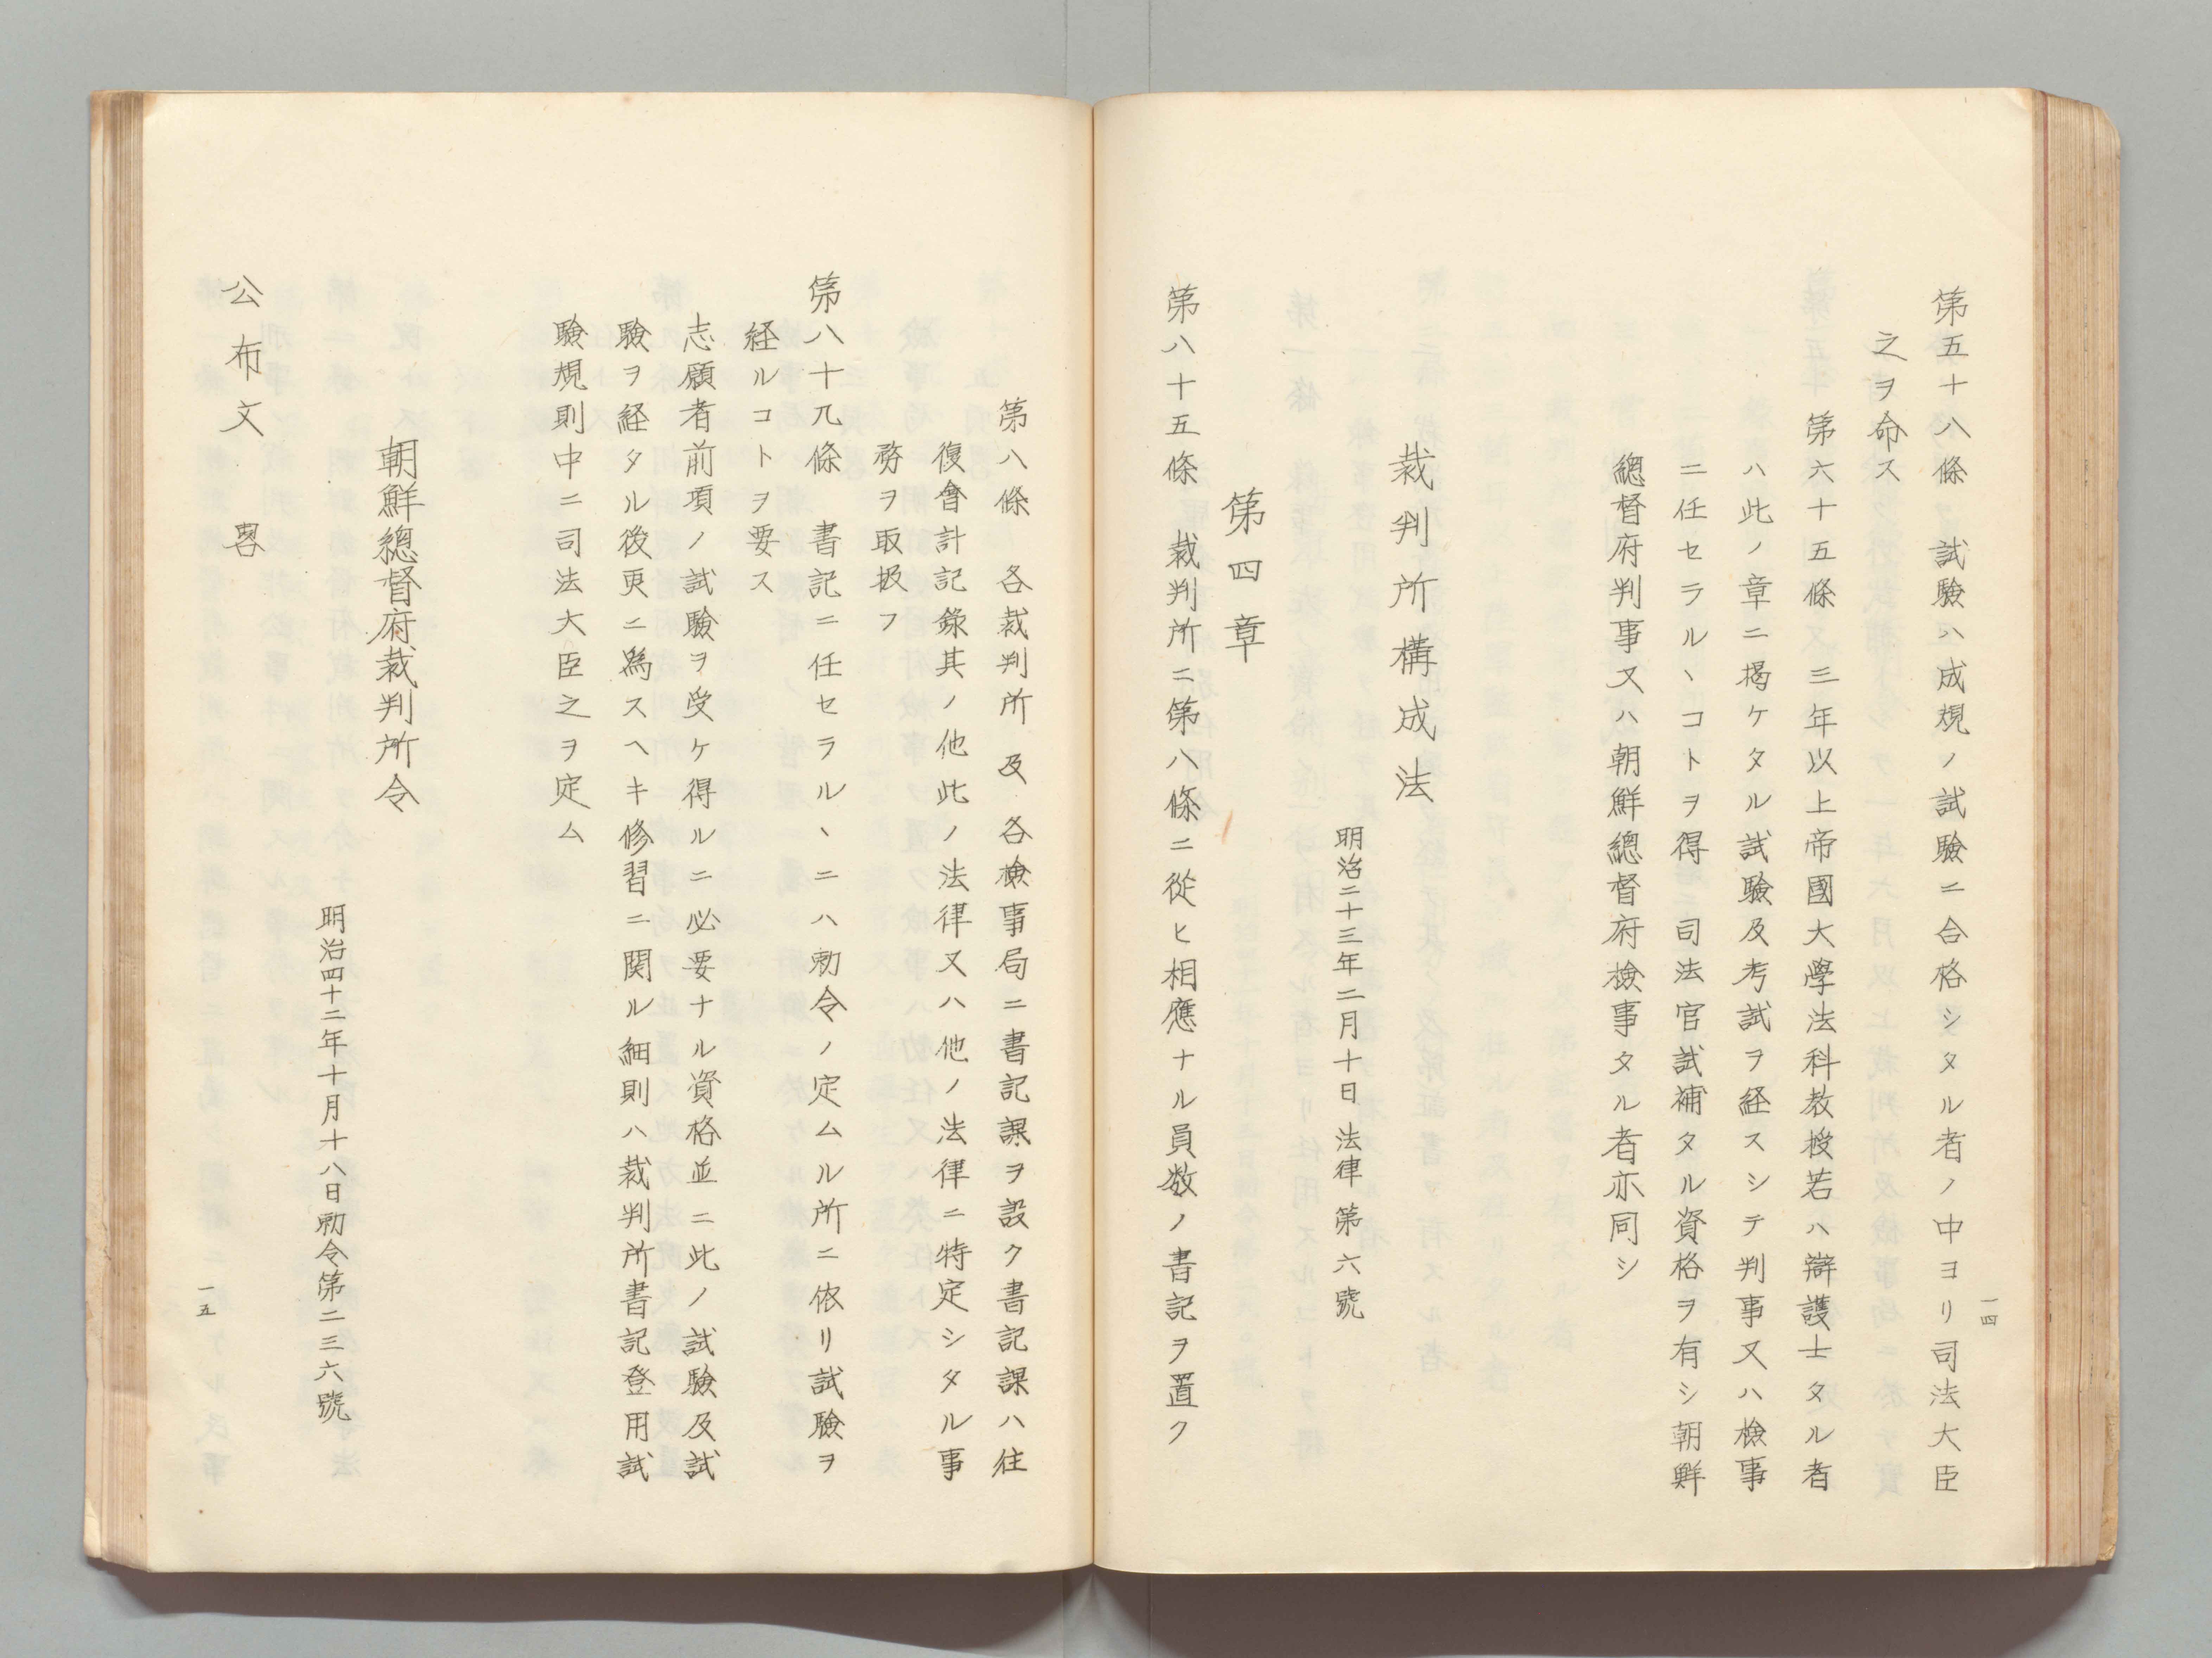 第五十八條　試驗ハ成規ノ試驗ニ合格シタル者ノ中ヨリ司法大臣
之ヲ命ス
第六十五條　三年以上帝國大學法科教授若ハ辯護士タル者
ハ此ノ章ニ揭ケタル試驗及考試ヲ経スシテ判事又ハ檢事
ニ任セラルヽコトヲ得　司法官試補タル資格ヲ有シ朝鮮
總督府判事又ハ朝鮮總督府檢事タル者亦同シ
裁判所構成法
明治二十三年二月十日　法律第六號
第四章
第八十五條　裁判所ニ第八條ニ從ヒ相應ナル員数ノ書記ヲ置ク
一四
第八條　各裁判所及各檢事局ニ書記課ヲ設ク書記課ハ往
復會計記錄其ノ他此ノ法律又ハ他ノ法律ニ特定シタル事
務ヲ取扱フ
第八十九條　書記ニ任セラルヽニハ勅令ノ定ムル所ニ依リ試驗ヲ
経ルコトヲ要ス
志願者前項ノ試驗ヲ受ケ得ルニ必要ナル資格並ニ此ノ試驗及試
驗ヲ経タル後更ニ爲スヘキ修習ニ関ル細則ハ裁判所書記登用試
驗規則中ニ司法大臣之ヲ定ム
朝鮮總督府裁判所令
明治四十二年十月十八日勅令第二三六號
公布文　畧
一五